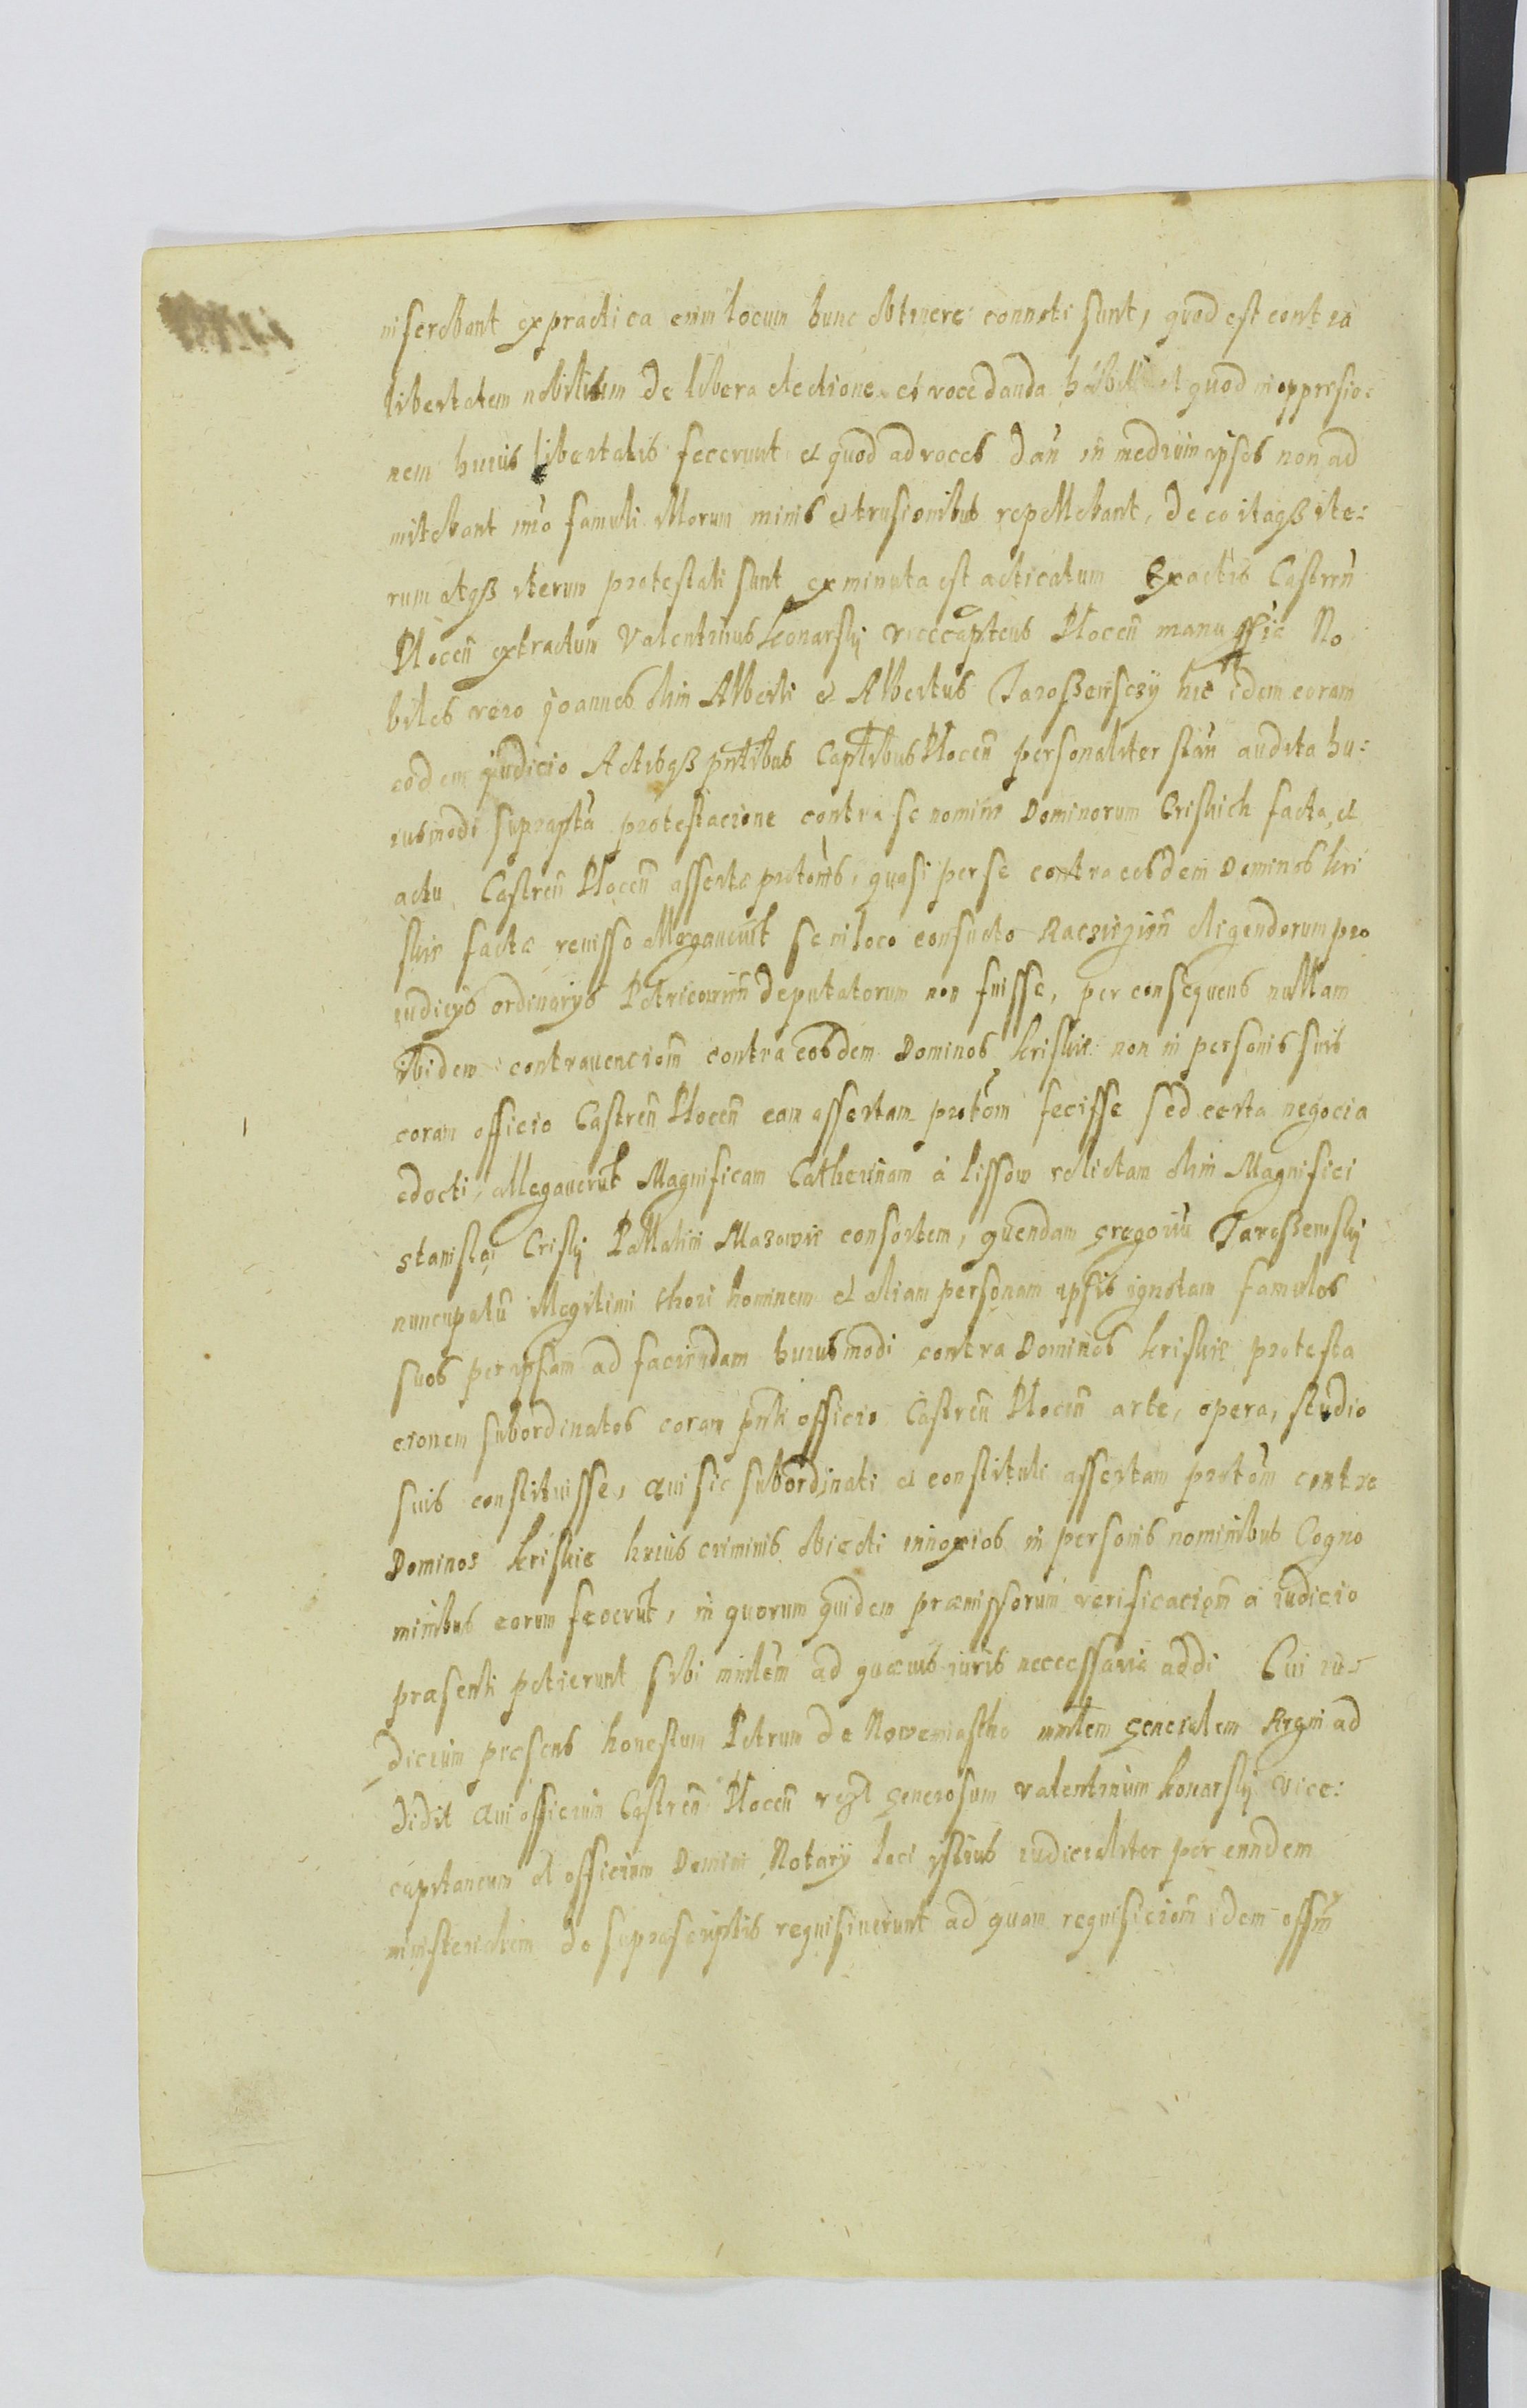 niserebant ex practica enim locum hunc obtinere connati sunt, quod est contra
libertatem nobilium de libera electione et voce danda et quod in oppressio=
nem huius libertatis fecerunt et quod ad voces dan̄ in medium ipsos non ad
mitebant imo famuli illorum minis et trusionibus repellebant, de eo itaqß ite=
rum atqß iterum protestati sunt ex minuta est acticatum Ex actis Castren̄
Plocen̄ extractum Valentinus Konarsky vicecapteus Plocen̄ manu No
biles vero Joannes olim Alberti et Albertus Jaroßewsczÿ hic idem coram
eodem Judicio Actisqß pn̄tibus Captlibus Plocen̄ personaliter stan̄ audita hu=
iusmodi suprapta protestacione contra se nomine Dominorum Criskich facta, et
actu Castren̄ Plocen̄ assertæ prot̄onis, quasi per se contra eosdem Dominos Kri
skie factæ remisso allegaverūt se in loco consueto Racziązien̄ eligendorum pro
iudicÿs ordinarÿs Petricovien̄ Deputatorum non fuisse, per consequens nullam
ibidem contravencion̄ contra eosdem Dominos Kriskie non in personis suis
coram officio Castren̄ Plocen̄ eam assertam prot̄om fecisse sed certa negocia
edocti, allegaverūt Magnificam Catherinam a Lissow relictam olim Magnifici
Stanislai Crisky Pallatini Mazowie consortem, quendam Gregoriū Jaroßewsky
nuncupatū illegitimi thori hominem et aliam personam ipsis ignotam famulos
suos per ipsam ad faciendam huiusmodi contra Dominos Kriskie protesta
cionem subordinatos coram pn̄ti officio Castren̄ Plocen̄ arte, opera, studio
suis constituisse, qui sic subordinati et constituti assertam prot̄om contra
Dominos Kriskie huius criminis obiecti innoxios in personis nominibus Cogno
minibus eorum fecerūt, in quorum quidem præmissorum verificacion̄ a iudicio
præsenti petierunt sibi min̄lem ad quævis iuris necessaria addi Cui iu=
dicium præsens honestum Petrum de Nowemiastho min̄lem Generalem Regni ad
didit Qui officium Castren̄ Plocen̄ Generosum Valentinum Konarsky vice=
capitaneum et officium Domini Notarÿ loci istius iudicialiter per eundem
ministerialem de suprascriptis requisiuerunt ad quam requisicion̄ idem off̄m